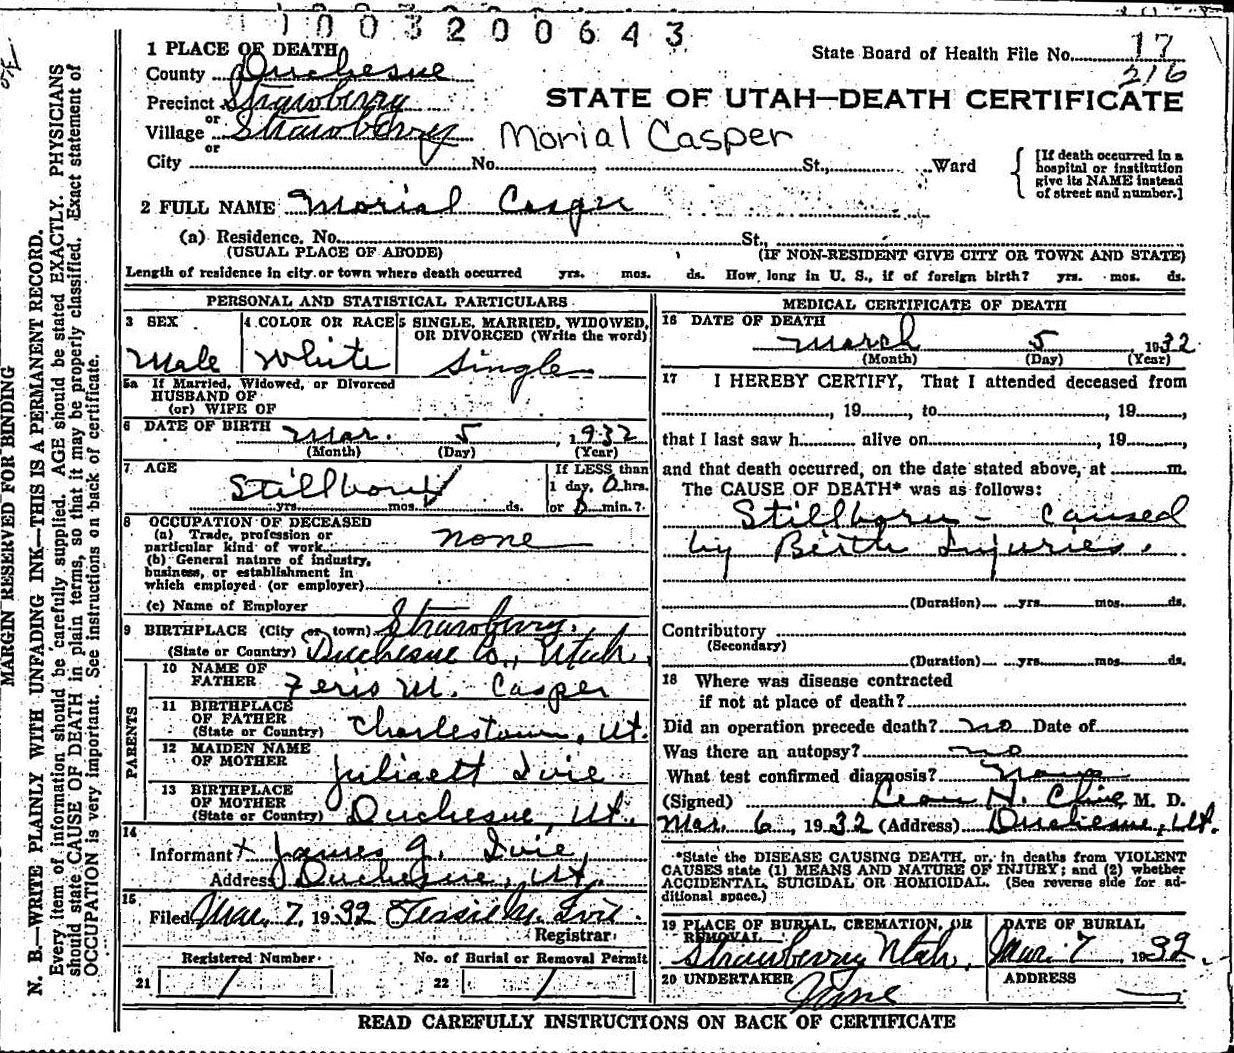 1003200643
1 PLACE OF DEATH
State Board of Health File No. 17
County Duchesne
216
Precinct Strawberry
STATE OF UTAH—DEATH CERTIFICATE
or
Village Strawberry
Morial Casper
or
City No. St., Ward
[If death occurred in a
hospital or institution
give its NAME instead
of street and number.]
2 FULL NAME Morial Casper
(a) Residence. No. St.,
(USUAL PLACE OF ABODE) (IF NON-RESIDENT GIVE CITY OR TOWN AND STATE)
Length of residence in city or town where death occurred yrs. mos. ds. How long in U. S., if of foreign birth? yrs. mos. ds.
PERSONAL AND STATISTICAL PARTICULARS
3 SEX 4 COLOR OR RACE 5 SINGLE, MARRIED, WIDOWED,
OR DIVORCED (Write the word)
Male White Single
5a If Married, Widowed, or Divorced
HUSBAND OF
(or) WIFE OF
6 DATE OF BIRTH Mar. 5, 1932
(Month) (Day) (Year)
7 AGE If LESS than
Stillborn 1 day, 0 hrs.
yrs. mos. ds. or 0 min.?
8 OCCUPATION OF DECEASED
(a) Trade, profession or
particular kind of work none
(b) General nature of industry,
business, or establishment in
which employed (or employer)
(c) Name of Employer
9 BIRTHPLACE (City or town) Strawberry,
(State or Country) Duchesne Co., Utah.
PARENTS
10 NAME OF
FATHER Feris M. Casper
11 BIRTHPLACE
OF FATHER
(State or Country) Charlestown, Ut.
12 MAIDEN NAME
OF MOTHER Juliaett Ivie
13 BIRTHPLACE
OF MOTHER
(State or Country) Duchesne, Ut.
14
Informant x James J. Ivie,
Address Duchesne, Ut.
15
Filed Mar. 7, 1932 Jessie M. Ivie.
Registrar
Registered Number No. of Burial or Removal Permit
21 / 22 /
MEDICAL CERTIFICATE OF DEATH
16 DATE OF DEATH
March 5, 1932
(Month) (Day) (Year)
17 I HEREBY CERTIFY, That I attended deceased from
, 19 , to , 19 ,
that I last saw h alive on , 19 ,
and that death occurred, on the date stated above, at m.
The CAUSE OF DEATH* was as follows:
Stillborn - caused
by Birth Injuries.
(Duration) yrs. mos. ds.
Contributory
(Secondary)
(Duration) yrs. mos. ds.
18 Where was disease contracted
if not at place of death?
Did an operation precede death? no Date of
Was there an autopsy? no
What test confirmed diagnosis?
(Signed) M. D.
Mar. 6, 1932 (Address) Duchesne, Ut.
*State the DISEASE CAUSING DEATH, or, in deaths from VIOLENT
CAUSES state (1) MEANS AND NATURE OF INJURY; and (2) whether
ACCIDENTAL, SUICIDAL OR HOMICIDAL. (See reverse side for ad-
ditional space.)
19 PLACE OF BURIAL, CREMATION, OR
REMOVAL
Strawberry Utah.
DATE OF BURIAL
Mar. 7, 1932.
20 UNDERTAKER
None
ADDRESS
READ CAREFULLY INSTRUCTIONS ON BACK OF CERTIFICATE
MARGIN RESERVED FOR BINDING
N. B.—WRITE PLAINLY WITH UNFADING INK—THIS IS A PERMANENT RECORD.
Every item of information should be carefully supplied. AGE should be stated EXACTLY. PHYSICIANS
should state CAUSE OF DEATH in plain terms, so that it may be properly classified. Exact statement of
OCCUPATION is very important. See instructions on back of certificate.